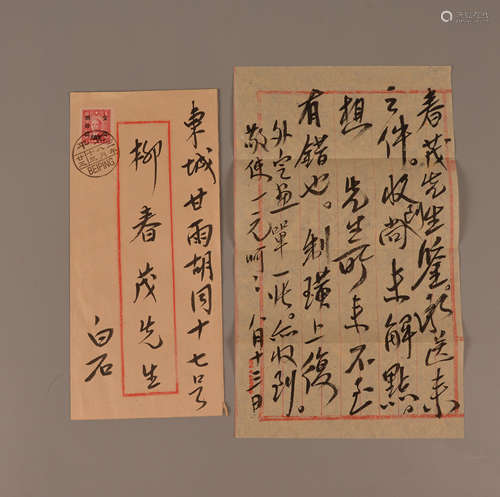 東城甘雨胡同十七号
柳春茂先生
白石
BEIPING
春茂先生鉴。承送来
之件。收到尚未解點。
想 先生所来不至
有錯也。制璜上復
外空画單一帋。亦收到。
敬使一元呵。八月十三日